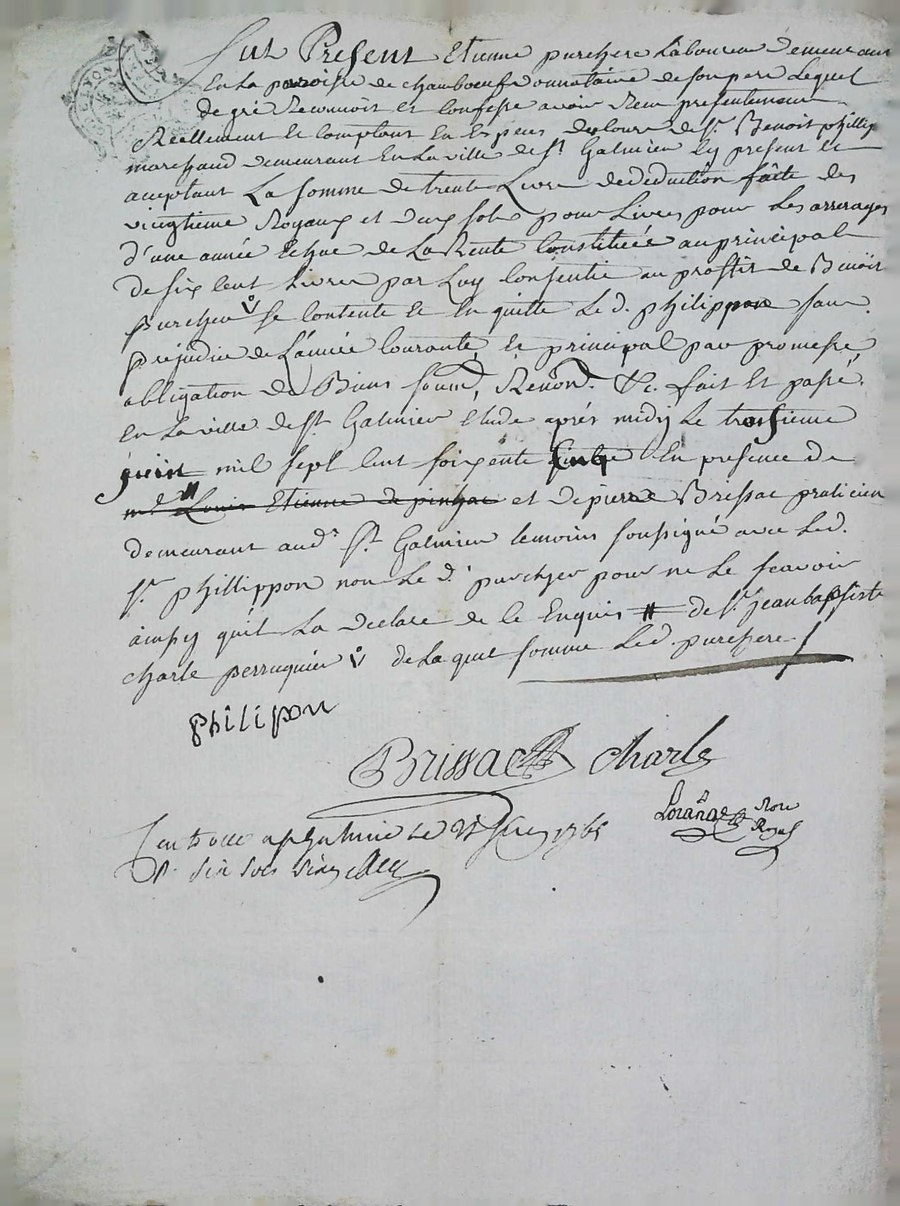 LYON
Fut Present Etienne purchere Laboureur demeurant
En La paroisse de chambœuf donnataire de son pere Lequel
de gré Reconnoit et Confesse avoir Reçu presentement
Réellement et Comptant En Especes de Cours de Sr. Benoit phillip
marchand demeurant En La ville de St. Galmier Ley present et
aceptant La somme de trente Livre de deduction faite des
vingtieme Royaux et deux sols pour Livres pour Les arrerages
d'une année Echue de La Rente Constituée au principal
de six Cent Livres par Luy Consentie au proffit de Benoit
purcher se Contente et En quitte Le d. philippon sans
préjudice de L'année Courante, et principal par promesse,
obligation de Biens soum. Renon. &c. fait Et passé.
En La ville de St. Galmier Etude aprés midy Le troisieme
juin mil sept Cent soixante Cinq En presence de
mr. Louis Etienne de pinhac et de pierre Brissac praticien
demeurant aud. St. Galmier temoins soussigné avec Led.
Sr. phillippon non Le d. purcher pour ne Le scavoir
ainsy qu'il La declaré de ce Enquis # de Sr. jean baptiste
charle perruquier de La quel somme Led. purchere
philipon
Brissac charle
Notre
Royal
1765